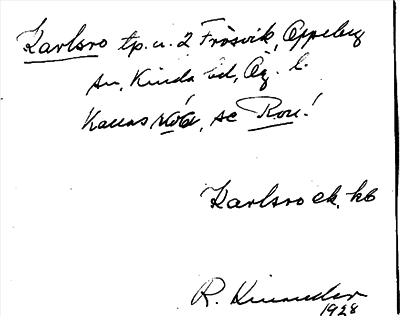 Karlsro tp. u. 2 Frösvik, Oppeby
sn, Kinda hd, Ög. l.
Kallas Röda, se Ron!
Karlsro ek. kb
R. Kinander
1928